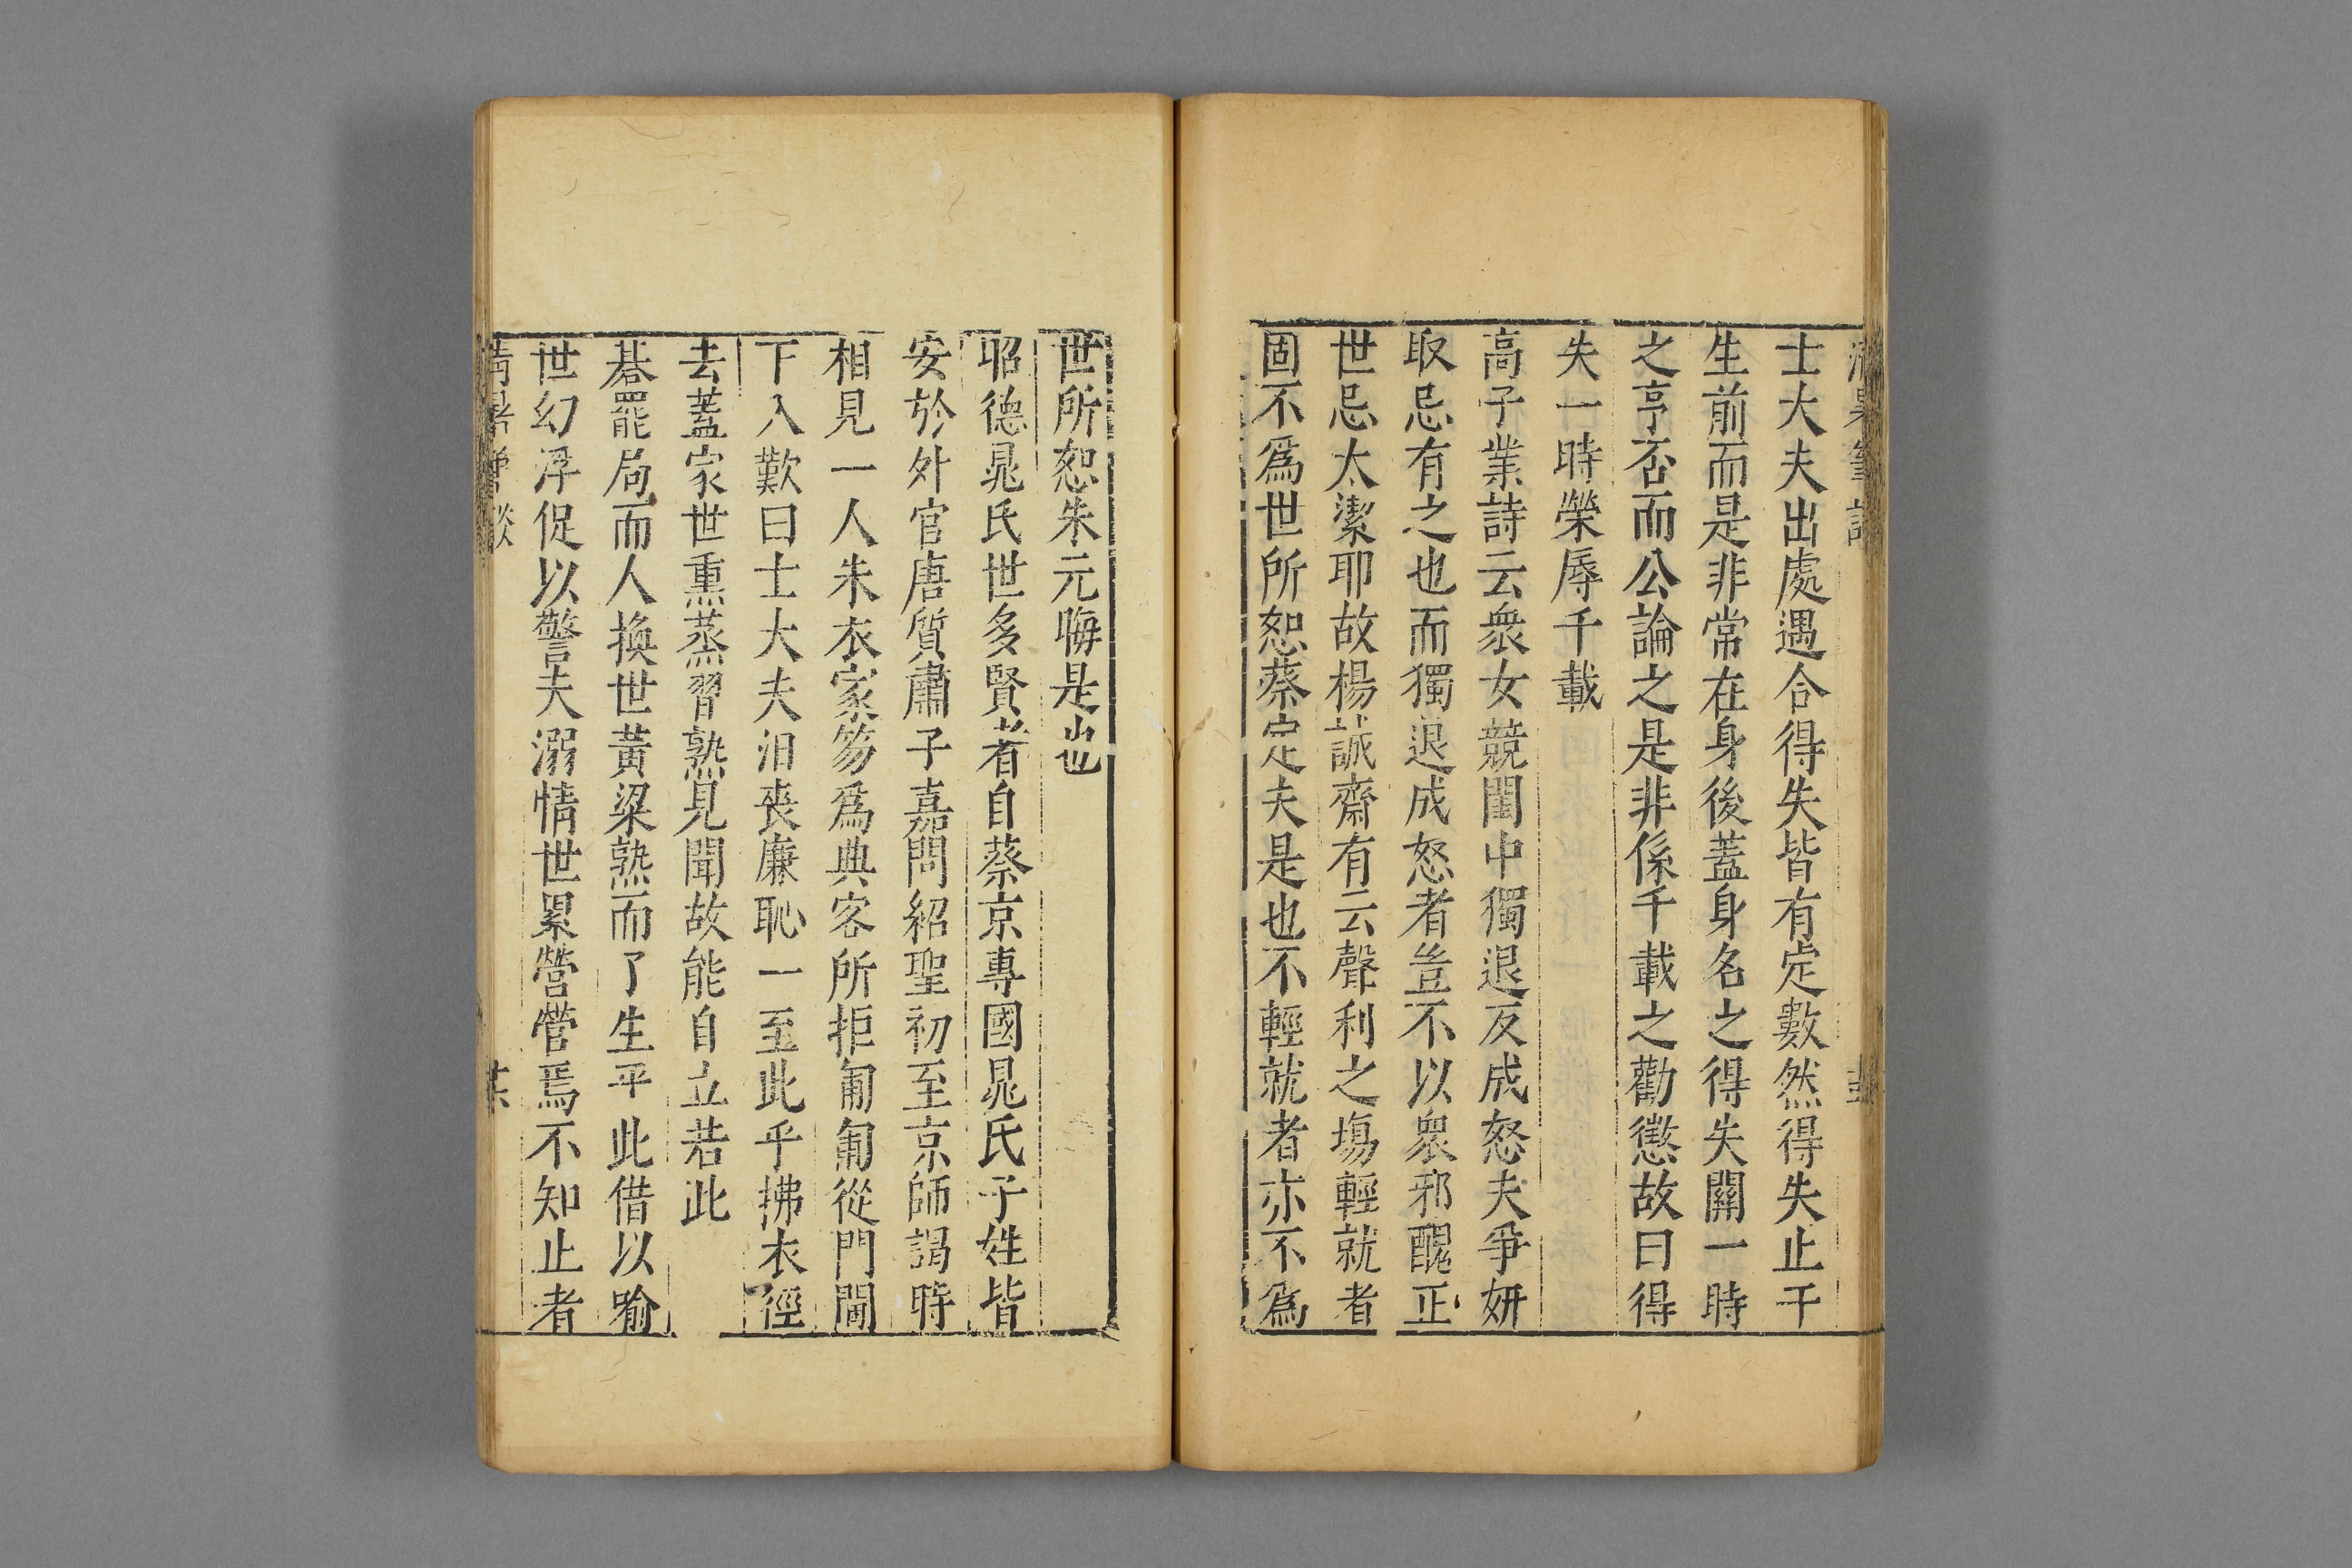 士大夫出處遇合得失皆有定數然得失止千
生前而是非常在身後蓋身名之得失關一時
之亨否而公論之是非係千載之勸懲故曰得
失一時榮辱千載
高子業詩云衆女競閨中獨退反成怒夫爭妍
取忌有之也而獨退成怒者豈不以衆邪醜正
世忌太潔耶故楊誠齋有云聲利之塲輕就者
固不爲世所恕蔡定夫是也不輕就者亦不爲
世所恕朱元晦是也
昭德晁氏世多賢者自蔡京專國晁氏子姓皆
安於外官唐質肅子嘉問紹聖初至京師謁時
相見一人朱衣象笏爲典客所拒匍匐從門閫
下入歎曰士大夫汨喪廉恥一至此乎拂衣徑
去蓋家世熏蒸習熟見聞故能自立若此
碁罷局而人換世黃粱熟而了生平此借以喻
世幻浮促以警夫溺情世累營營焉不知止者